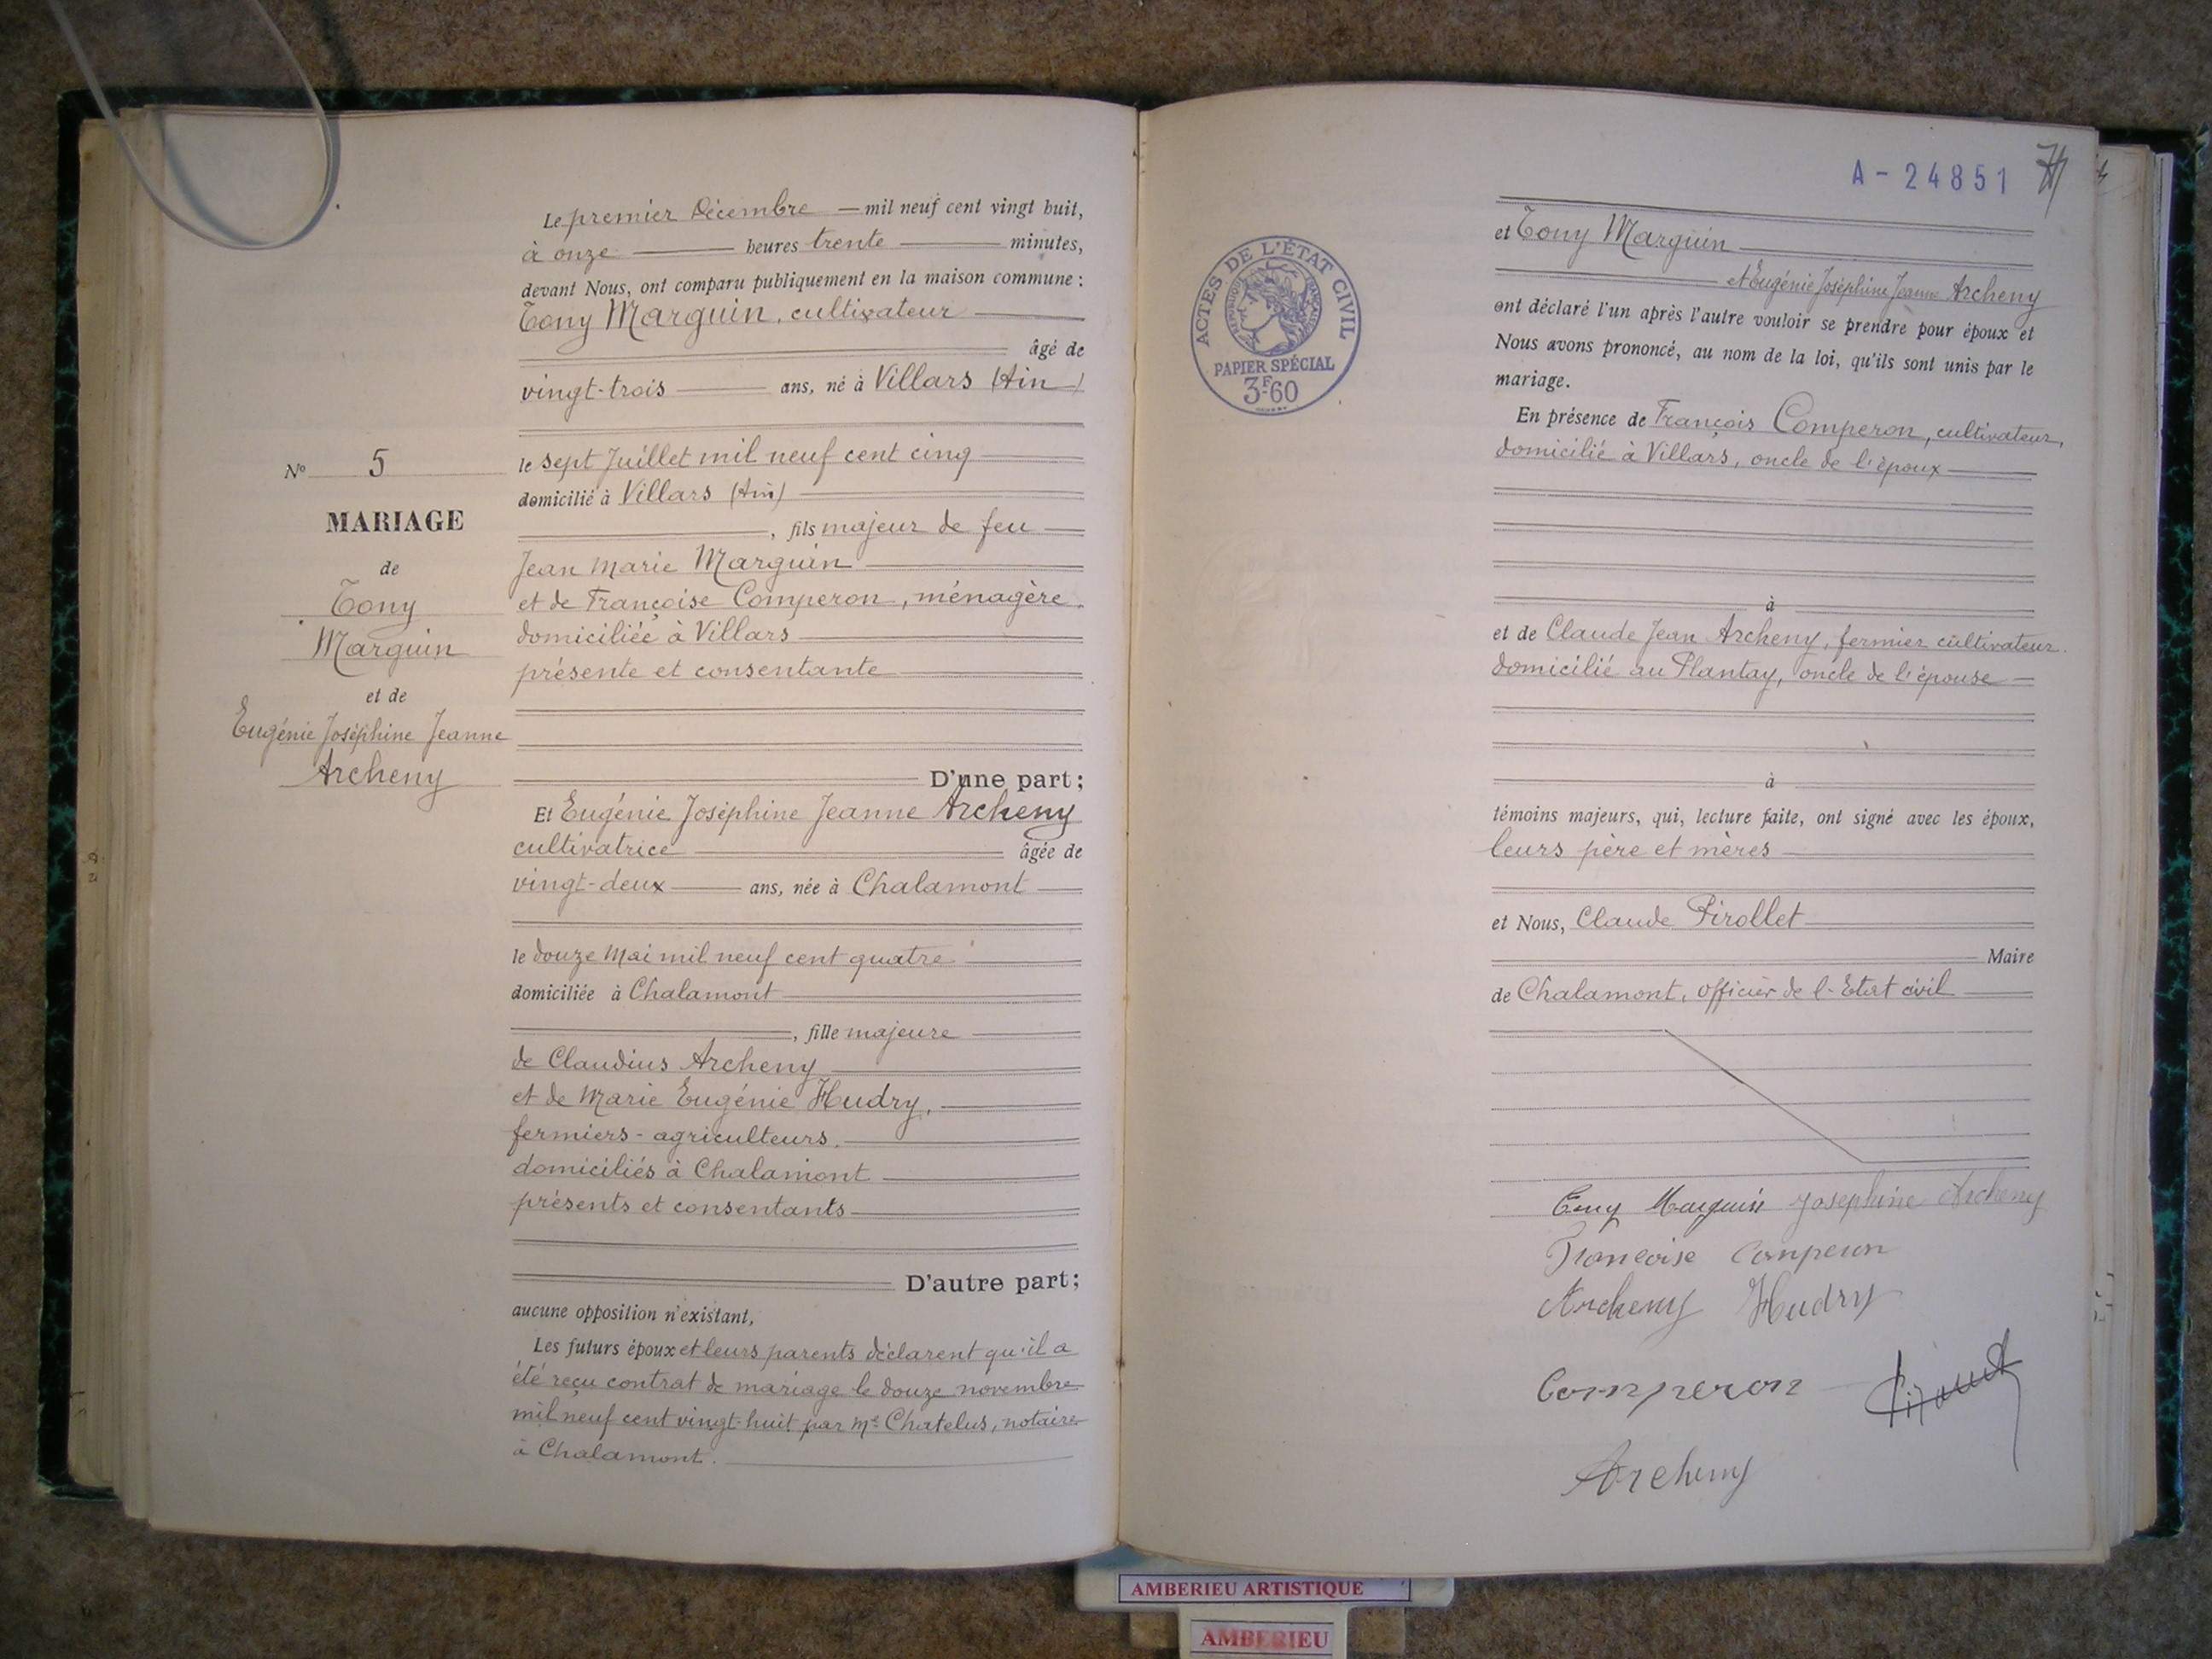 Le premier Décembre — mil neuf cent vingt huit,
à onze — heures trente — minutes,
devant Nous, ont comparu publiquement en la maison commune :
Tony Marguin, cultivateur
âgé de
vingt-trois — ans, né à Villars (Ain)
le sept Juillet mil neuf cent cinq
domicilié à Villars (Ain)
, fils majeur de feu
Jean Marie Marguin
et de Françoise Comperon, ménagère,
domiciliée à Villars
présente et consentante
D'une part ;
Et Eugénie Joséphine Jeanne Archeny
cultivatrice — âgée de
vingt-deux — ans, née à Chalamont
le douze Mai mil neuf cent quatre
domiciliée à Chalamont
, fille majeure
de Claudius Archeny
et de Marie Eugénie Hudry,
fermiers-agriculteurs,
domiciliés à Chalamont
présents et consentants
D'autre part ;
aucune opposition n'existant,
Les futurs époux et leurs parents déclarent qu'il a
été reçu contrat de mariage le douze novembre
mil neuf cent vingt-huit par Me Chatelus, notaire
à Chalamont.
No 5
MARIAGE
de
Tony
Marguin
et de
Eugénie Joséphine Jeanne
Archeny
A - 24851
ACTES DE L'ÉTAT CIVIL
RÉPUBLIQUE FRANÇAISE
PAPIER SPÉCIAL
3F60
et Tony Marguin
et Eugénie Joséphine Jeanne Archeny
ont déclaré l'un après l'autre vouloir se prendre pour époux et
Nous avons prononcé, au nom de la loi, qu'ils sont unis par le
mariage.
En présence de François Comperon, cultivateur,
domicilié à Villars, oncle de l'époux
à
et de Claude Jean Archeny, fermier cultivateur
domicilié au Plantay, oncle de l'épouse
à
témoins majeurs, qui, lecture faite, ont signé avec les époux,
leurs père et mères
et Nous, Claude Pirollet
Maire
de Chalamont, officier de l'Etat civil
Tony Marguin Joséphine Archeny
Françoise Comperon
Archeny Hudry
Comperon
Archeny
AMBERIEU ARTISTIQUE
AMBERIEU